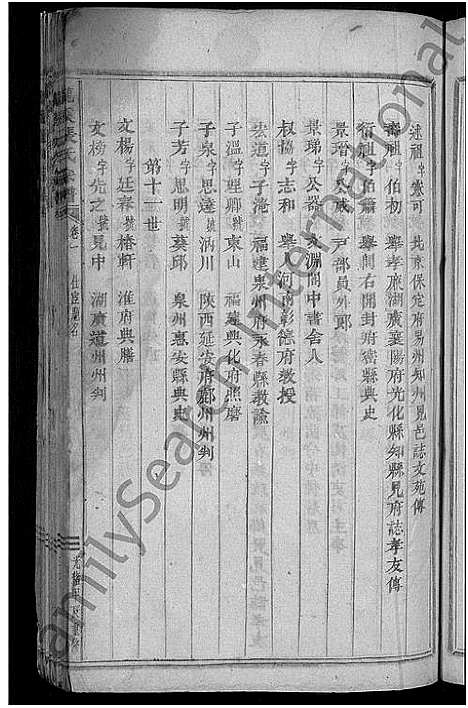 述祖字震可 北京保定府易州知州見邑誌文苑傳
壽祖字伯初 舉孝廉湖廣襄陽府光化縣知縣見府誌孝友傳
衍祖字伯蕭 舉開右開封府密縣典史
景瑨字公咸 戶部員外郎
景瑞字公器 文淵閣中書舍人
叔協字志和 舉人河南彰德府教授
宏道字子淹 福建泉州府永春縣教諭
子溫字理卿號東山 福建興化府照磨
子泉字思達號汭川 陝西延安府鄜州州判
子芳字思明號葵邱 泉州惠安縣典史
第十一世
文楊字廷春號椿軒 淮府典膳
文榜字先之號見中 湖廣道州州判
卷一
FamilySearch International